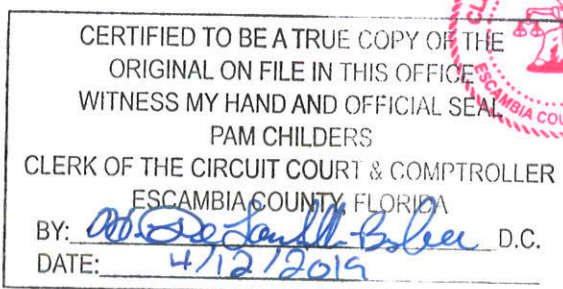 CERTIFIED TO BE A TRUE COPY OF THE
ORIGINAL ON FILE IN THIS OFFICE
WITNESS MY HAND AND OFFICIAL SEAL
PAM CHILDERS
CLERK OF THE CIRCUIT COURT & COMPTROLLER
ESCAMBIA COUNTY, FLORIDA
BY: D.C.
DATE: 4/12/2019
ESCAMBIA COU